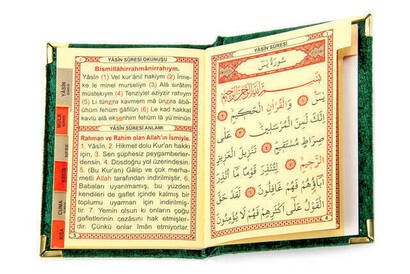 YÂSÎN SÛRESİ OKUNUŞU
Bismillâhirrahmânirrahıym.
Yâsîn (1) Vel kur'ânil hakiym (2) İnne-
ke le minel murseliyn (3) Alâ sırâtım
müstekıym (4) Tenziylel aziyzir rahıym
(5) Li tünzira kavmem mâ ünzira âbâ-
ühüm fehüm ğâfilûn (6) Le kad hakkal
kavlü alâ ekserihim fehüm lâ yü'minûn
YÂSÎN SÛRESİ ANLAMI
Rahman ve Rahim olan Allah'ın İsmiyle.
1. Yâsîn, 2. Hikmet dolu Kur'an hakkı
için, 3. Sen şüphesiz peygamberler-
densin. 4. Dosdoğru yol üzerindesin.
5. (Bu Kur'an) Gâlip ve çok merha-
metli Allah tarafından indirilmiştir. 6.
Babaları uyarılmamış, bu yüzden
kendileri de gaflet içinde kalmış bir
toplumu uyarman için indirilmiş-
tir. 7. Yemin olsun ki onların çoğu
gafletlerinin cezasını hak etmişler-
dir. Çünkü onlar îman etmiyorlar.
YÂSÎN
MÜLK
NEBE
CUMA
DUA
YÂSÎN SÛRESİ
سُورَةُ يٰسٓ
بِسْمِ اللّٰهِ الرَّحْمٰنِ الرَّحِيمِ
يٰسٓ ۝ وَالْقُرْاٰنِ الْحَكِيمِ ۝
اِنَّكَ لَمِنَ الْمُرْسَلِينَ ۝ عَلٰى
صِرَاطٍ مُسْتَقِيمٍ ۝ تَنْزِيلَ الْعَزِيزِ
الرَّحِيمِ ۝ لِتُنْذِرَ قَوْمًا مَٓا اُنْذِرَ
اٰبَٓاؤُهُمْ فَهُمْ غَافِلُونَ ۝ لَقَدْ حَقَّ
الْقَوْلُ عَلٰٓى اَكْثَرِهِمْ فَهُمْ لَا يُؤْمِنُونَ